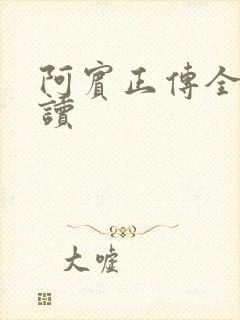 阿賓正傳全
讀
大嘘